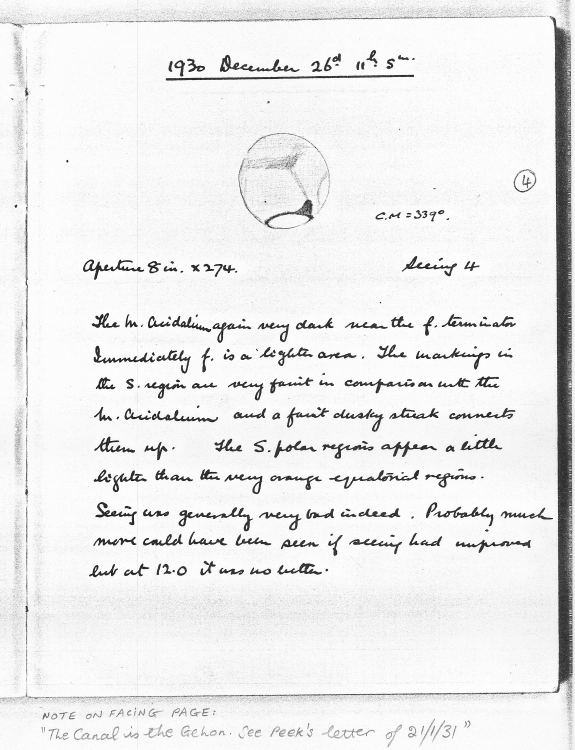 1930 December 26d 11h 5m.
4
C.M = 339°.
Aperture 8 in. x 274.
Seeing 4
The M. Acidalium again very dark near the f. terminator
Immediately f. is a lighter area. The markings in
the S. region are very faint in comparison with the
M. Acidalium and a faint dusky streak connects
them up. The S. polar regions appear a little
lighter than the very orange equatorial regions.
Seeing was generally very bad indeed. Probably much
more could have been seen if seeing had improved
but at 12.0 it was no better.
NOTE ON FACING PAGE:
"The Canal is the Gehon. See Peek's letter of 21/1/31"